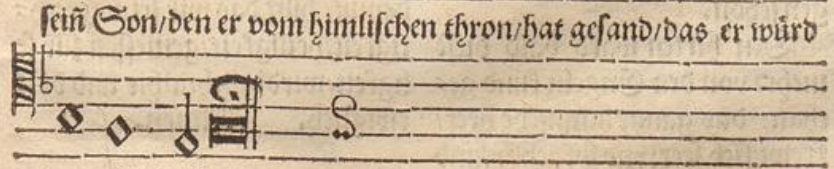 ſeiñ Son/den er vom himliſchen thron/hat geſand/das er würd